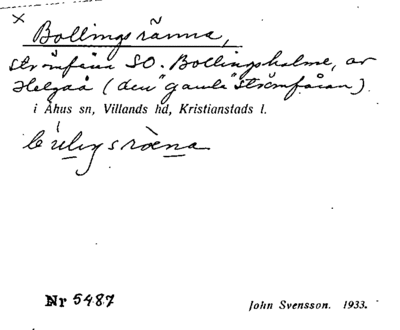 ×
Bollingsränna,
strömfåra SO. Bollingsholme, av
Helgeå (den "gamla" strömfåran).
i Åhus sn, Villands hd, Kristianstads l.
Nr 5487
John Svensson. 1933.